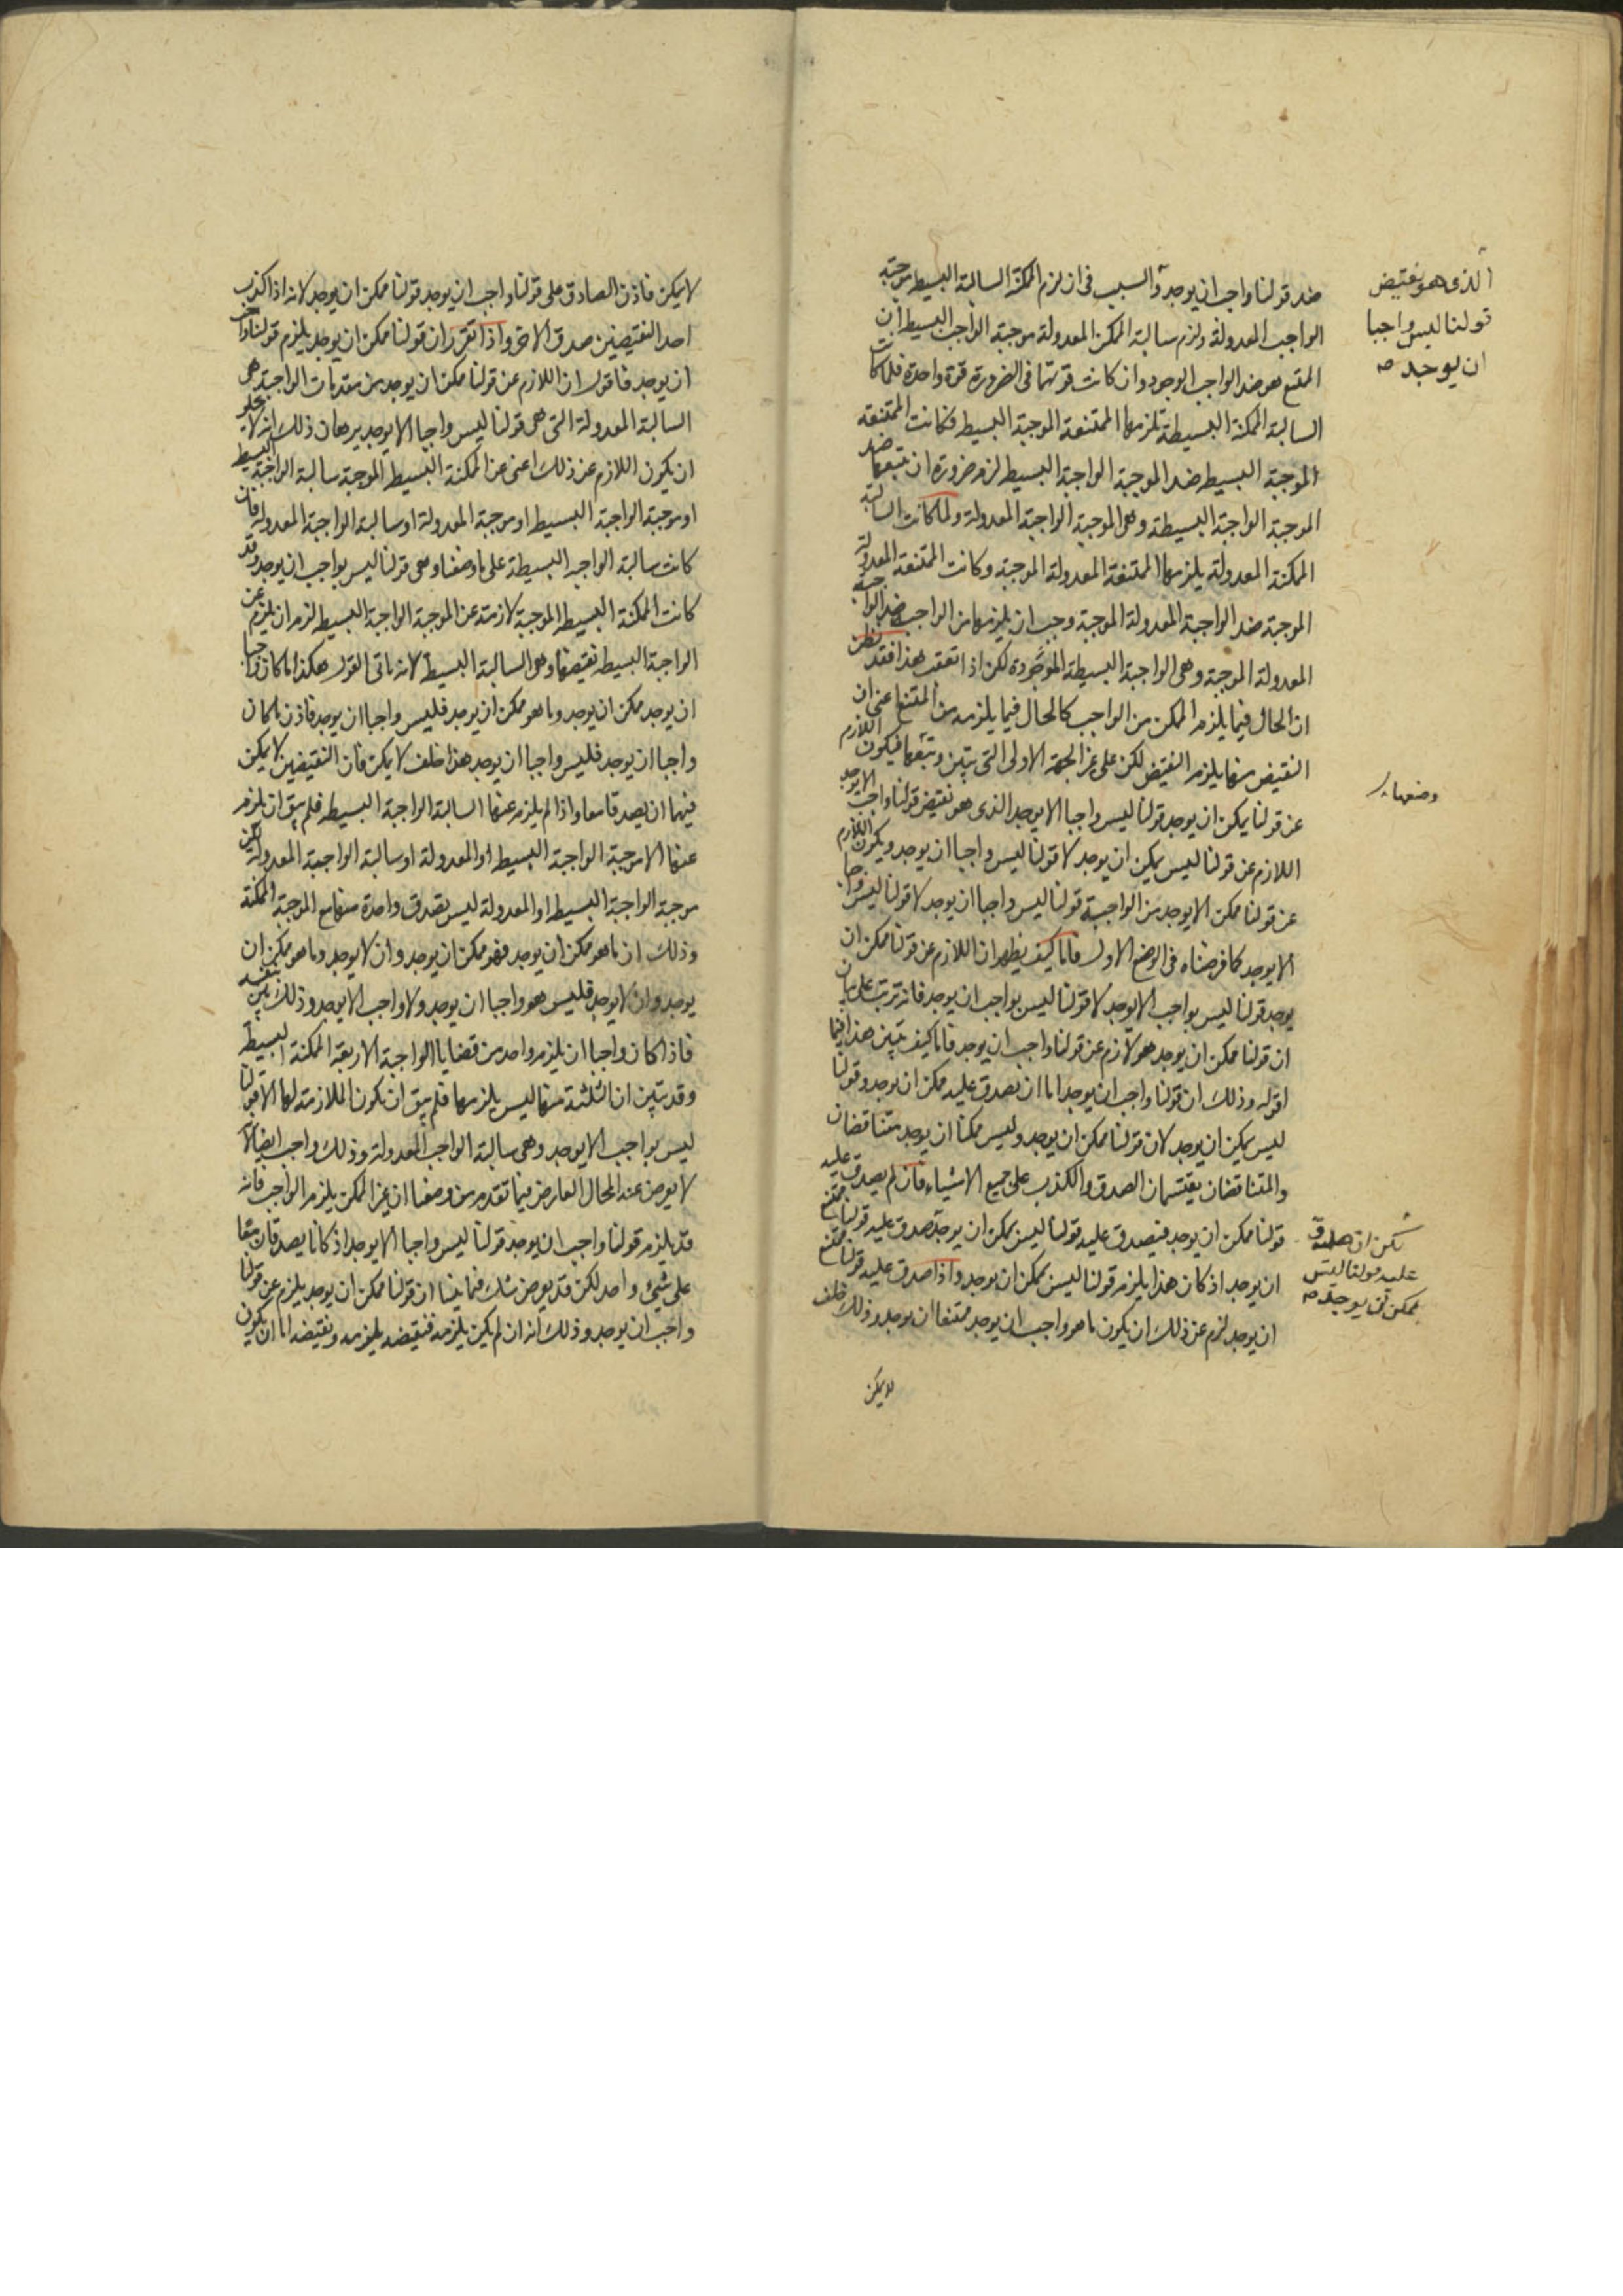 ضد قولنا واجب ان يوجد والسبب فى ان لزم الممكنة السالبة البسيطة موجبة
الواجب المعدولة ولزم سالبة الممكن المعدولة موجبة الواجب البسيط ان
الممتنع هو ضد الواجب الوجود وان كانت قوتهما فى الضرورة قوة واحدة فلما كانت
السالبة الممكنة البسيطة تلزمها الممتنعة الموجبة البسيط وكانت الممتنعة
الموجبة البسيط ضد الموجبة الواجبة البسيط لزم ضرورة ان يتبعها ضد
الموجبة الواجبة البسيطة وهو الموجبة الواجبة المعدولة ولما كانت السالبة
الممكنة المعدولة يلزمها الممتنعة المعدولة الموجبة وكانت الممتنعة المعدولة
الموجبة ضد الواجبة المعدولة الموجبة وجب ان يلزمها من الواجب ضد الواجبة
المعدولة الموجبة وهى الواجبة البسيطة الموجودة لكن اذا تعقب هذا فقد يظن
ان الحال فيما يلزم الممكن من الواجب كالحال فيما يلزمه من الممتنع اعنى ان
النقيض منها يلزم النقيض لكن على غير الجهة الاولى التى تبين وتتبعها فيكون اللازم
عن قولنا يمكن ان يوجد قولنا ليس واجبا الا يوجد الذى هو نقيض قولنا واجب الا يوجد
اللازم عن قولنا ليس يمكن ان يوجد لا قولنا ليس واجبا ان يوجد ويكون اللازم
عن قولنا ممكن الا يوجد من الواجبة قولنا ليس واجبا ان يوجد لا قولنا ليس واجبا
الا يوجد كما فرضناه فى الوضع الاول فاما كيف يظهر ان اللازم عن قولنا ممكن ان
يوجد قولنا ليس بواجب الا يوجد لا قولنا ليس بواجب ان يوجد فانه ترتب على بيان
ان قولنا ممكن ان يوجد هو لازم عن قولنا واجب ان يوجد فاما كيف تبين هذا فيما
اقوله وذلك ان قولنا واجب ان يوجد اما ان يصدق عليه ممكن ان يوجد وقولنا
ليس يمكن ان يوجد لان قولنا ممكن ان يوجد وليس ممكنا ان يوجد متناقضان
والمتناقضان يقتسمان الصدق والكذب على جميع الاشياء فان لم يصدق عليه
قولنا ممكن ان يوجد فيصدق عليه قولنا ليس يمكن ان يوجد صدق عليه قولنا ممتنع
ان يوجد اذ كان هذا يلزم قولنا ليس يمكن ان يوجد واذا صدق عليه قولنا ممتنع
ان يوجد لزم عن ذلك ان يكون ما هو واجب ان يوجد ممتنعا ان يوجد وذلك خلف
لا يمكن
الذى هو نقيض
قولنا ليس واجبا
ان يوجد صح
وضعها
لكن ان صدق
عليه قولنا ليس
يمكن ان يوجد صح
لا يمكن فاذن الصادق على قولنا واجب ان يوجد قولنا ممكن ان يوجد لانه اذا كذب
احد النقيضين صدق الاخر واذ اتقرر ان قولنا ممكن ان يوجد يلزم قولنا واجب
ان يوجد فاقول ان اللازم عن قولنا ممكن ان يوجد من مقدمات الواجبة هى
السالبة المعدولة التى هى قولنا ليس واجبا الا يوجد برهان ذلك انه لا يخلو
ان يكون اللازم عن ذلك اعنى عن الممكنة البسيط الموجبة سالبة الواجبة البسيط
او موجبة الواجبة البسيط او موجبة المعدولة او سالبة الواجبة المعدولة فان
كانت سالبة الواجبه البسيطة على ما وضعنا وهى قولنا ليس بواجب ان يوجد وقد
كانت الممكنة البسيط الموجبة لازمة عن الموجبة الواجبة البسيط لزم ان يلزم عن
الواجبة البسيط نقيضها وهو السالبة البسيط لانه ياتى القول هكذا ما كان واجبا
ان يوجد ممكن ان يوجد وما هو ممكن ان يوجد فليس واجبا ان يوجد فاذن ما كان
واجبا ان يوجد فليس واجبا ان يوجد هذا خلف لا يمكن فان النقيضين لا يمكن
فيهما ان يصدقا معا واذا لم يلزم عنها السالبة الواجبة البسيط فلم يبق ان يلزم
عنها الا موجبة الواجبة البسيط او المعدولة او سالبة الواجبة المعدولة لكن
موجبة الواجبة البسيط او المعدولة ليس يصدق واحدة منها مع الموجبة الممكنة
وذلك ان ما هو ممكن ان يوجد فهو ممكن ان يوجد وان لا يوجد وما هو ممكن ان
يوجد وان لا يوجد فليس هو واجبا ان يوجد ولا واجب الا يوجد وذلك بين بنفسه
فاذا كان واجبا ان يلزم واحد من قضايا الواجبة الاربعة الممكنة البسيط
وقد تبين ان الثلثة منها ليس يلزمها فلم يبق ان تكون الملازمة لها الا قولنا
ليس بواجب الا يوجد وهى سالبة الواجب المعدولة وذلك واجب ايضا لانه
لا يعرض عنه المحال العارض فيما تقدم من وضعنا ان غير الممكن يلزم الواجب فانه
قد يلزم قولنا واجب ان يوجد قولنا ليس واجبا الا يوجد اذ كانا يصدقان معا
على شئ واحد لكن قد يعرض شك فيما بينا ان قولنا ممكن ان يوجد يلزم عن قولنا
واجب ان يوجد وذلك انه ان لم يكن يلزمه فنقيضه يلزمه ونقيضه اما ان يكون